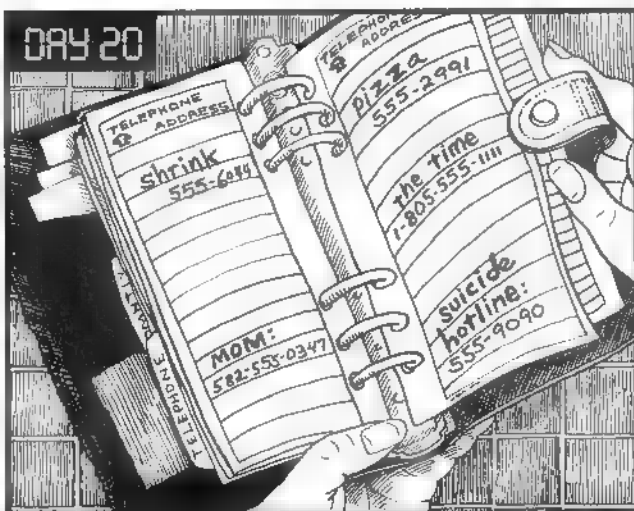 DAY 20
TELEPHONE
ADDRESS
shrink
555-6044
MOM:
582-555-0347
TELEPHONE
ADDRESS
pizza
555-2991
the time
1-805-555-1111
suicide
hotline:
555-9090
TELEPHONE